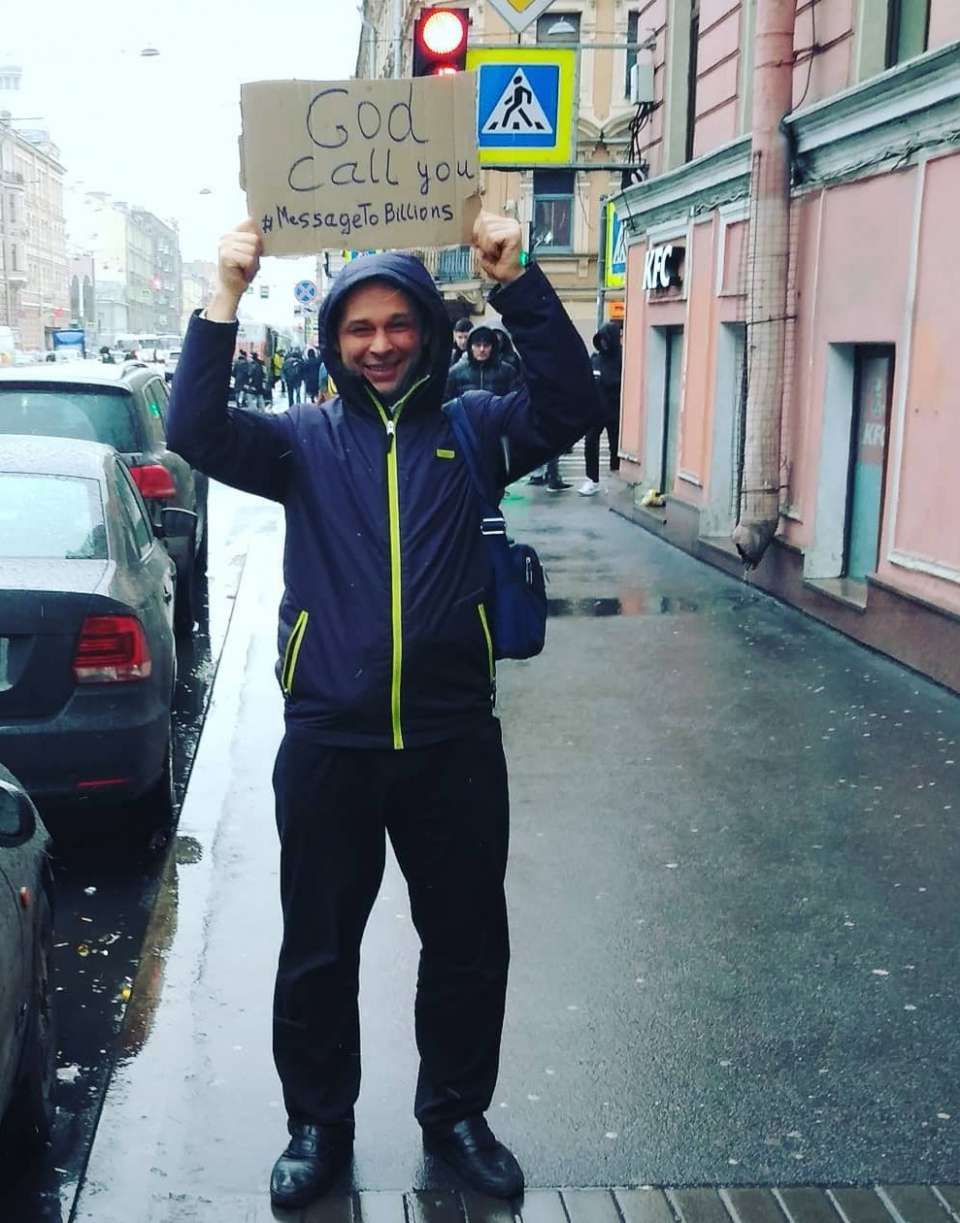 God
Call you
#MessageToBillions
KFC
KFC